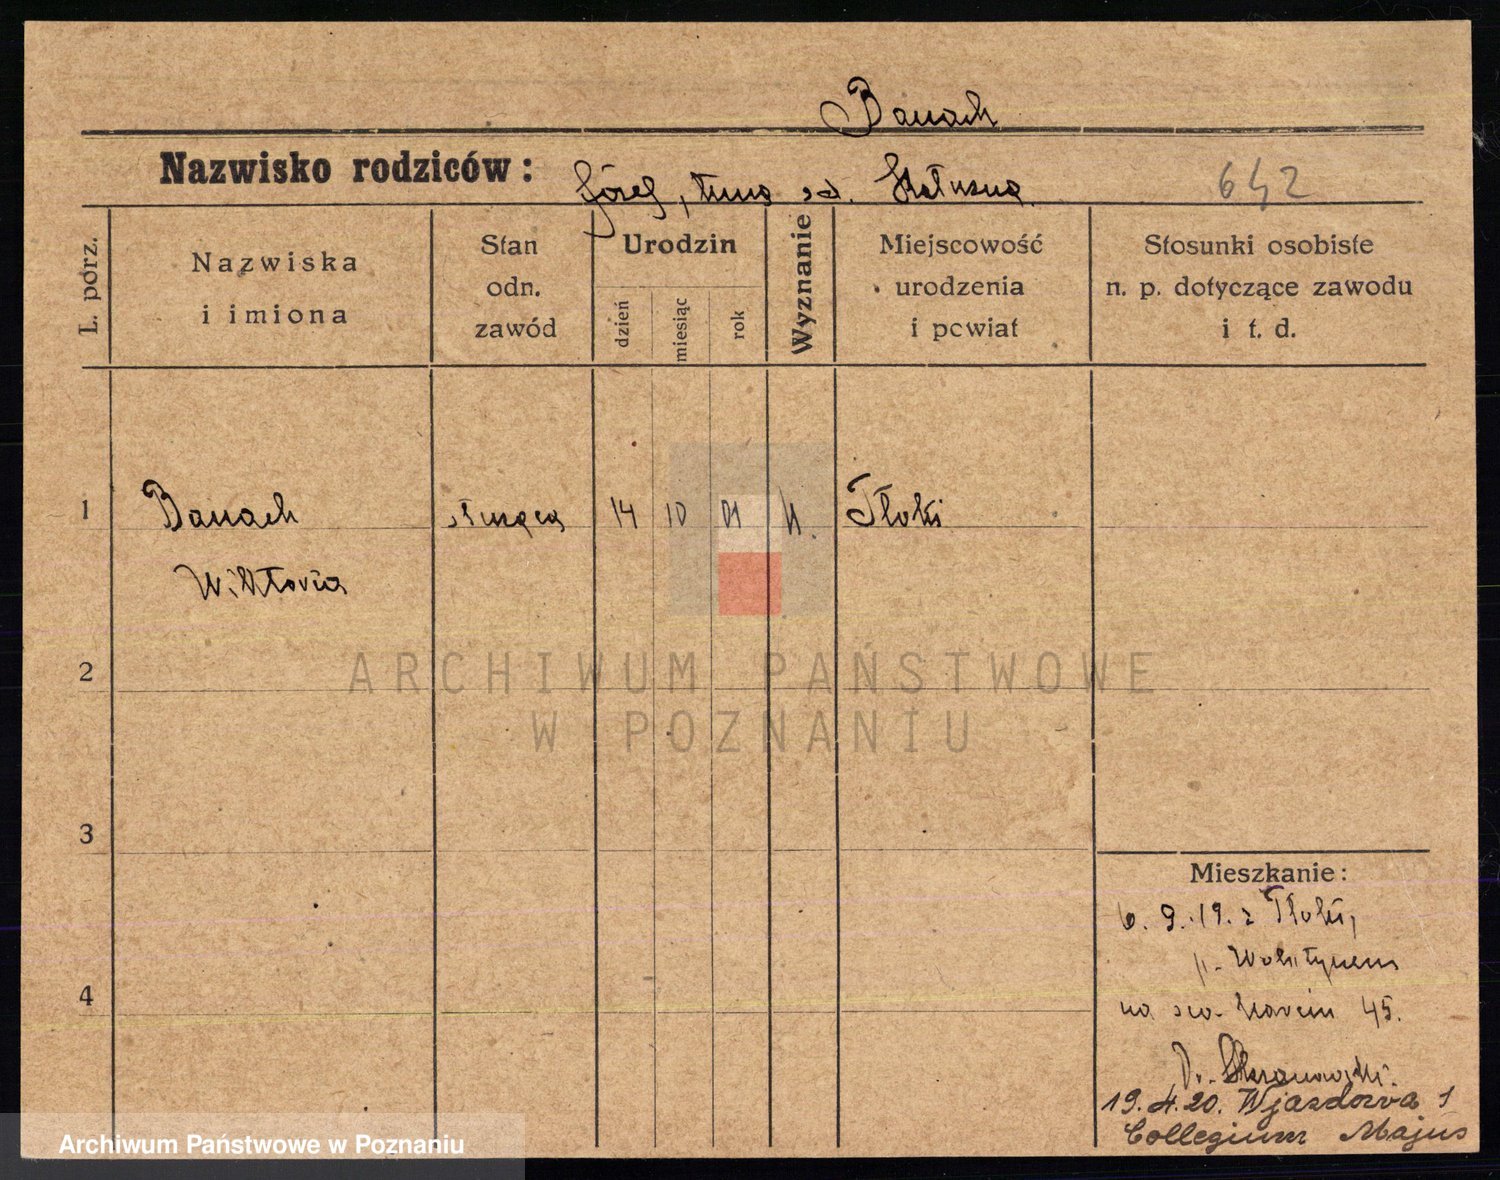 Banach
Nazwisko rodziców:
Józef, Anna zd.
642
L. porz.
Nazwiska
i imiona
Stan
odn.
zawód
Urodzin
dzień
miesiąc
rok
Wyznanie
Miejscowość
urodzenia
i powiat
Stosunki osobiste
n. p. dotyczące zawodu
i t. d.
1
Banach
służąca
14
10
01
k.
Tłoki
Wiktoria
ARCHIWUM PAŃSTWOWE
W POZNANIU
2
3
4
Mieszkanie:
6. 9. 19. z Tłoki,
p. Wolsztynem
na św. Marcin 45.
Dr.
19. 4. 20. Wjazdowa 1
Collegium Majus
Archiwum Państwowe w Poznaniu